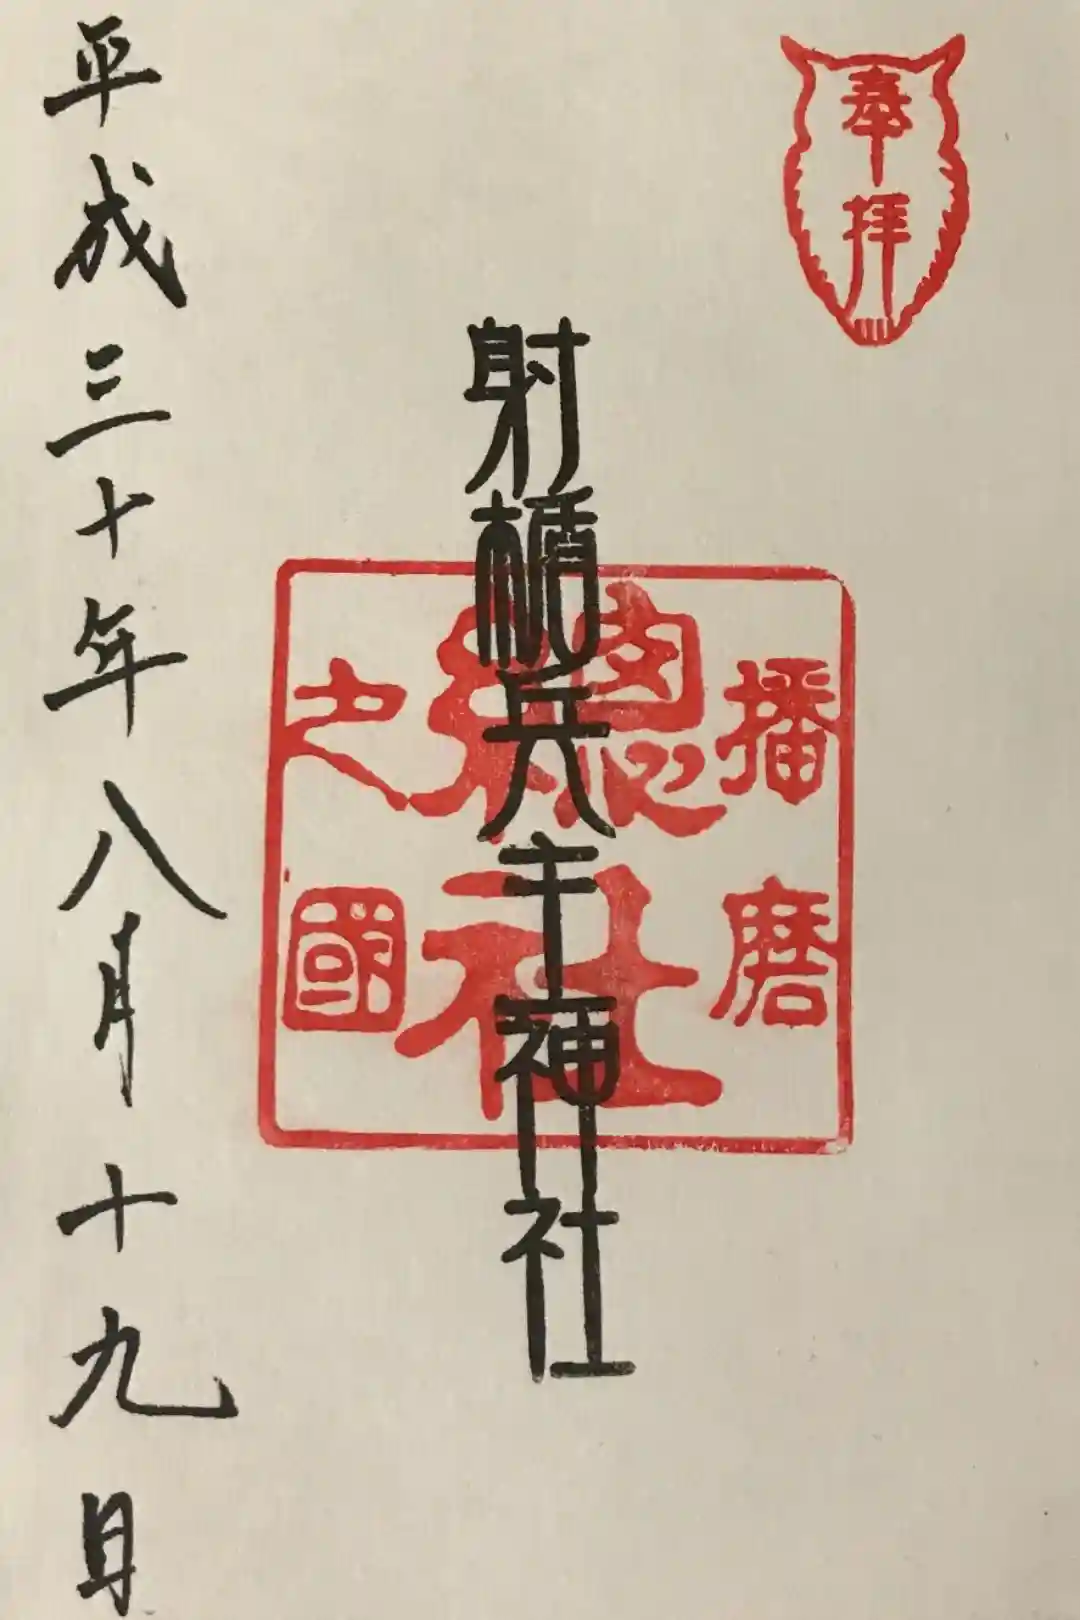 奉拝
射楯兵主神社
播磨
總社
之國
平成三十年八月十九日